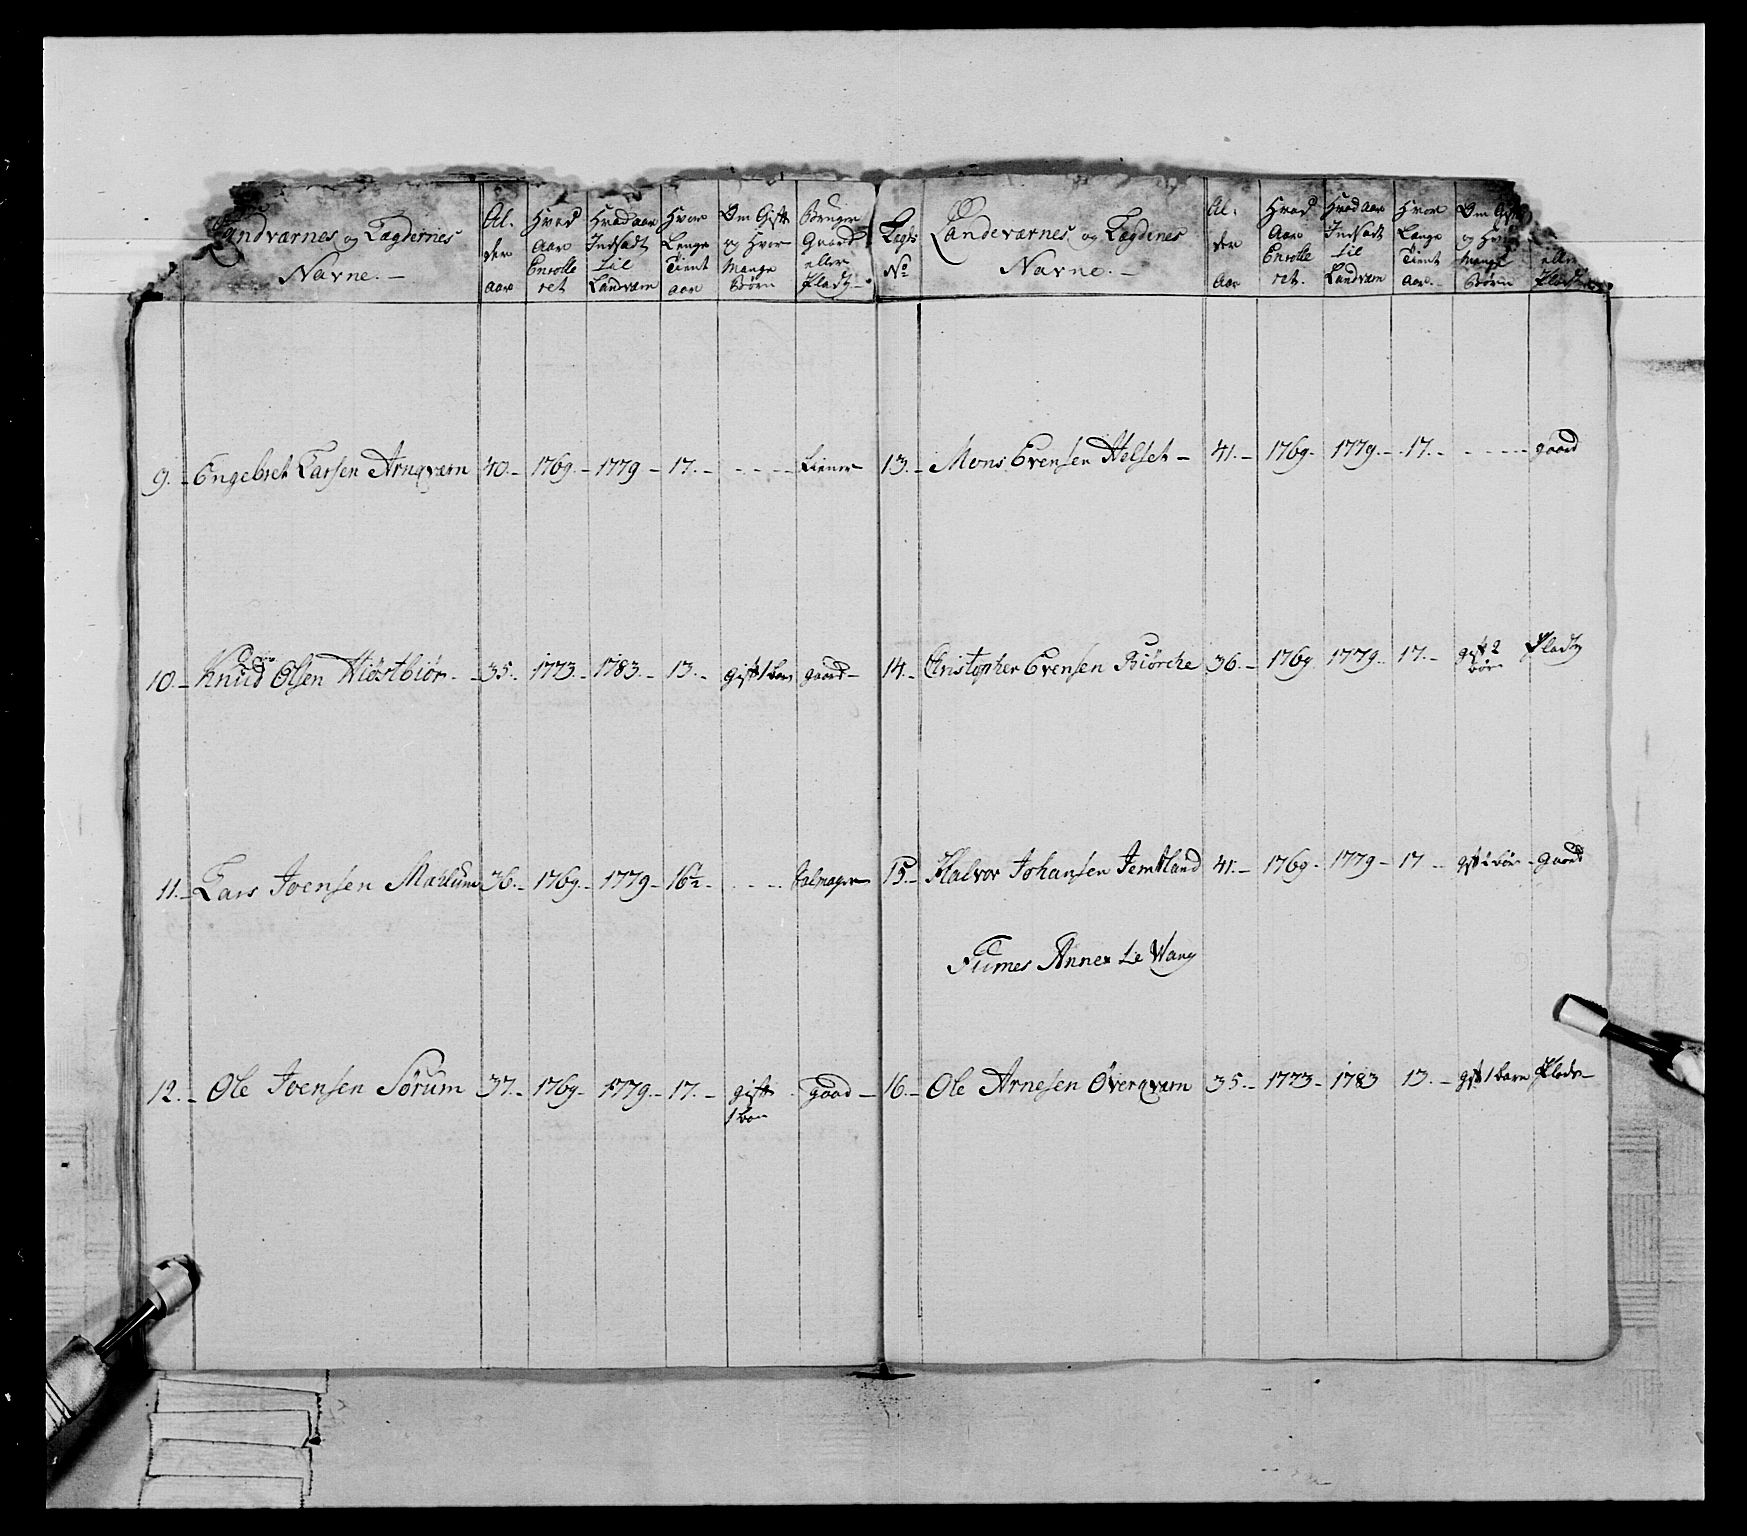 Landværnes og Lægdernes Navne. | Al. der aar | Hvad Aar Enrolle ret | Hvad aar Indsadt til Landværn | Hvor Længe Tient aar | Om Gift og Hvor Mange Børn | Bruger Gaard eller Pladtz
9. Engebret Larsen Arnqværn 40. 1769. 1779 17. - - - - tiener
10. Knud Olsen Kiøstbiør 35. 1773. 1783. 13. gift 1 barn gaard
11. Lars Joensen Mæhlum 36. 1769. 1779 16½ - - - -
12. Ole Joensen Sørum 37. 1769 1779. 17. gift 1 barn gaard
Legds No | Landeværnes og Lægdenes Navne. | Al. der Aar | Hvad Aar Enrolle ret. | Hvad Aar Indsadt til Landværn | Hvor Længe Tient Aar. | Om Gift og Hvor Mange Børn | eller Pladtz
13. Mons Evensen Holset 41. 1769. 1779. 17. - - - - gaard
14. Christopher Evensen Biørche 36. 1769 1779. 17. gift 2 børn Pladtz
15. Halvor Johansen Jemtland 41. 1769. 1779 17 gift 2 børn gaard
Furnes Annex til Wang
16. Ole Arnesen Øverqværn 35. 1773 1783 13. gift 1 barn Plads